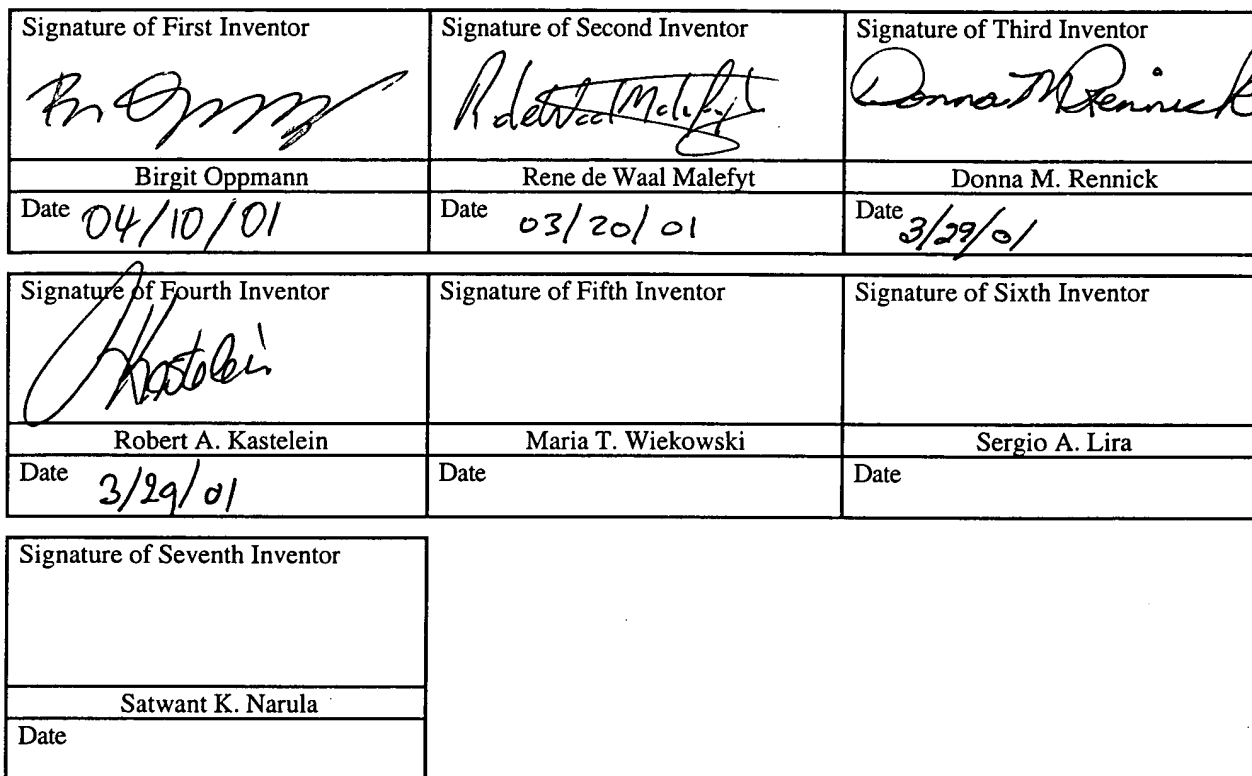 Signature of First Inventor
Signature of Second Inventor
Signature of Third Inventor
R de Waal Malefyt
Donna M Rennick
Birgit Oppmann
Rene de Waal Malefyt
Donna M. Rennick
Date 04/10/01
Date 03/20/01
Date 3/29/01
Signature of Fourth Inventor
Signature of Fifth Inventor
Signature of Sixth Inventor
Kastelein
Robert A. Kastelein
Maria T. Wiekowski
Sergio A. Lira
Date 3/29/01
Date
Date
Signature of Seventh Inventor
Satwant K. Narula
Date